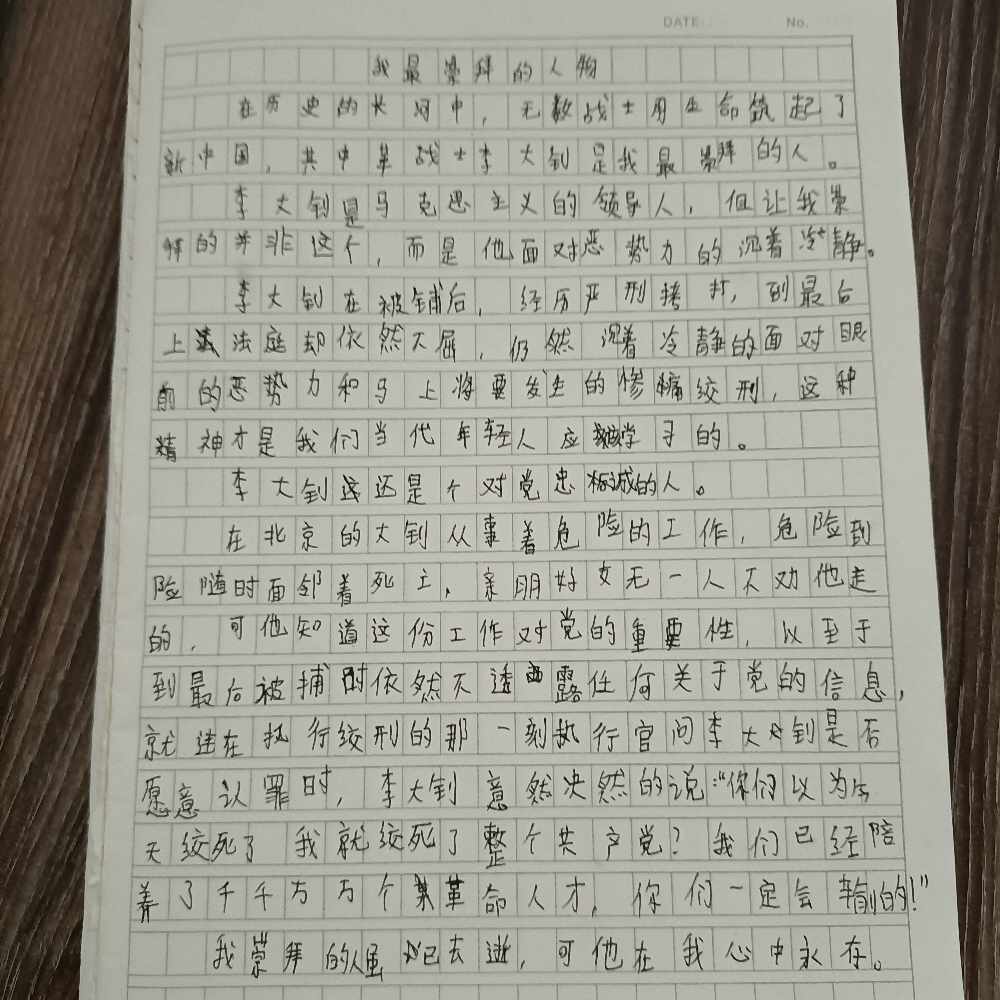 DATE: No.
我最崇拜的人物
在历史的长河中，无数战士用生命筑起了
新中国，共中革战士李大钊是我最崇拜的人。
李大钊是马克思主义的领导人，但让我崇
拜的并非这个，而是他面对恶势力的沉着冷静。
李大钊在被铺后，经历严刑拷打，到最后
上法庭却依然不屈，仍然沉着冷静的面对眼
前的恶势力和马上将要发生的惨绞刑，这种
精神才是我们当代年轻人应学习的。
李大钊还是个对党忠诚的人。
在北京的大钊从事着危险的工作，危险到
险随时面邻着死亡，亲朋好友无一人不劝他走
的，可他知道这份工作对党的重要性，以至于
到最后被捕时依然不透露任何关于党的信息，
就连在执行绞刑的那一刻执行官问李大钊是否
愿意认罪时，李大钊意然决然的说："你们以为今
天绞死了我就绞死了整个共产党？我们已经陪
养了千千万万个革命人才，你们一定会输的！"
我崇拜的人虽已去逝，可他在我心中永存。